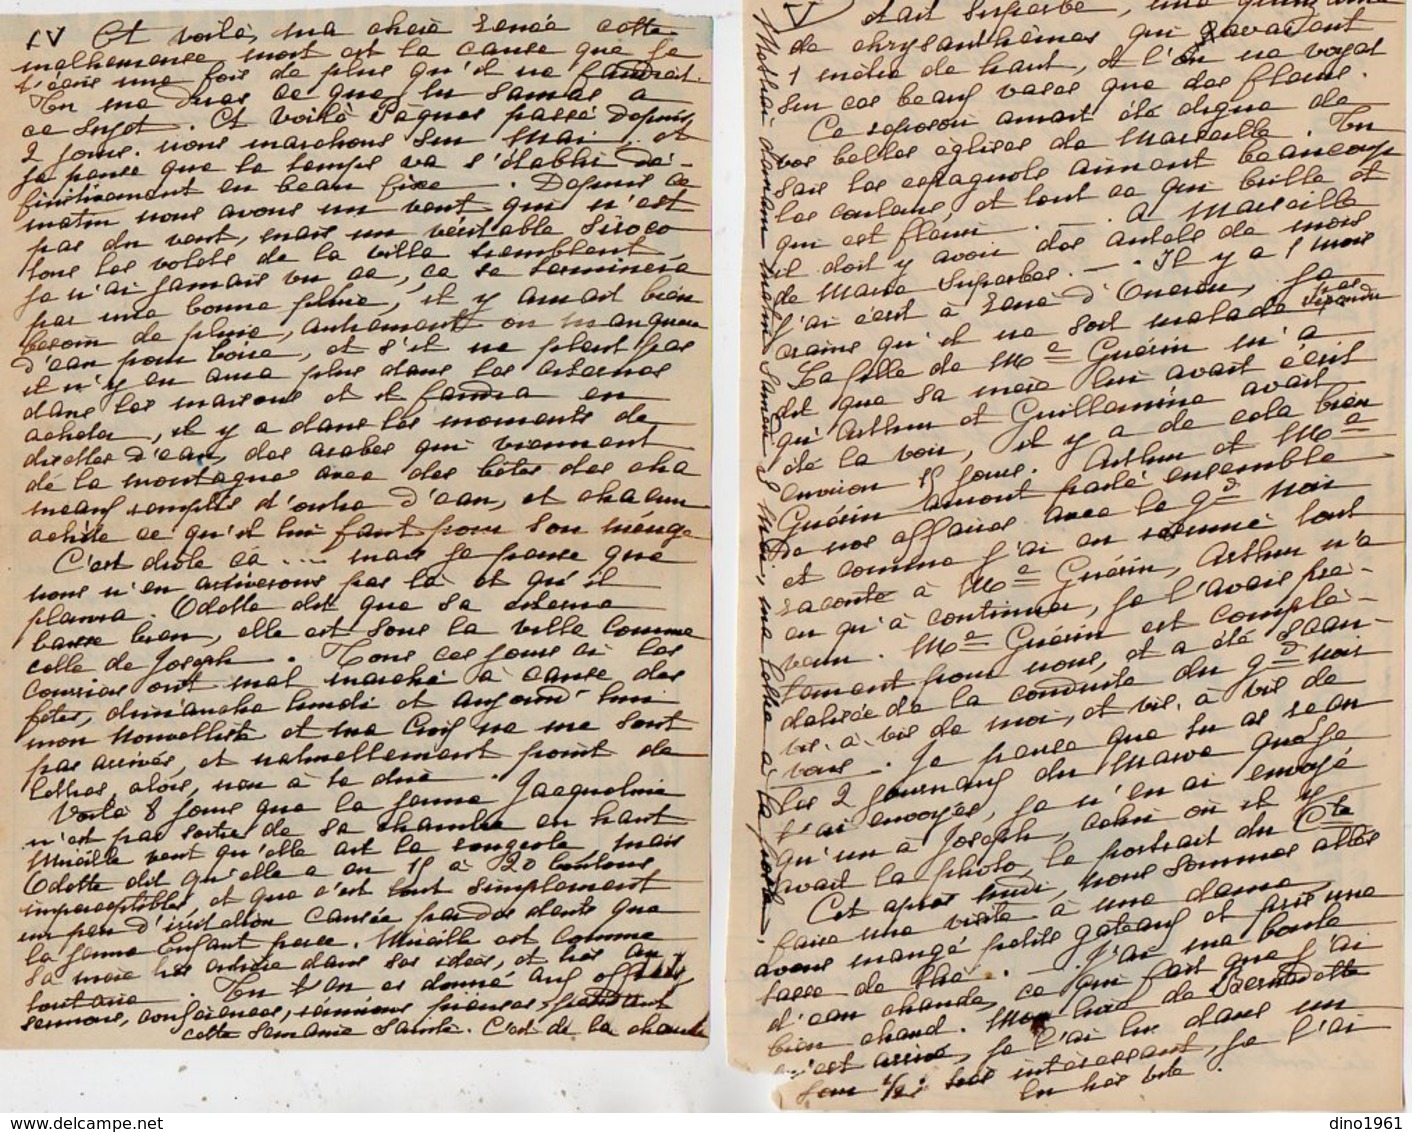 IV Et voilà, ma chère Renée cette
malheureuse mort est la cause que je
t'écris une fois de plus qu'il ne faudrait.
Tu me diras ce que tu sauras à
ce sujet. Et voilà Pâques passé depuis
2 jours. nous marchons sur Mai. et
je pense que le temps va s'établir dé-
finitivement en beau fixe. Depuis ce
matin nous avons un vent qui n'est
pas du vent, mais un véritable Siroco
tous les volets de la villa tremblent
je n'ai jamais vu ça, ça se terminera
par une bonne pluie, il y aurait bien
besoin de pluie, autrement on manquera
d'eau pour boire, et s'il ne pleut pas
il n'y en aura plus dans les citernes
dans les maisons et il faudra en
acheter, il y a dans les moments de
disettes d'eau, des arabes qui viennent
de la montagne avec des bêtes des cha
meaux remplis d'outre d'eau, et chacun
achète ce qu'il lui faut pour son ménage
C'est drôle ça .... mais je pense que
nous n'en arriverons pas là et qu'il
pleuvra. Odette dit que sa citerne
baisse bien, elle est sous la ville comme
celle de Joseph. Tous ces jours ci les
courriers ont mal marché à cause des
fêtes, dimanche lundi et aujourd'hui
mon Nouvelliste et ma Croix ne me sont
pas arrivés, et naturellement point de
lettres, alors, rien à te dire.
Voilà 8 jours que la jeune Jacqueline
n'est pas sortie de sa chambre en haut
Mireille veut qu'elle ait la rougeole, mais
Odette dit qu'elle a eu 15 à 20 boutons
imperceptibles, et que c'est tout simplement
un peu d'irritation causée par des dents que
la jeune Enfant perce. Mireille est comme
sa mère très entière dans ses idées, et très au
toritaire. Tu t'en es donné aux offices,
sermons, confessions, réunions prières, pendant
cette semaine sainte. C'est de la chance
V était superbe,
de chrysanthèmes qui avaient
1 mètre de haut, et l'on ne voyait
sur ces beaux vases que des fleurs.
Ce reposoir aurait été digne de
vos belles églises de Marseille. Tu
sais les espagnols aiment beaucoup
les couleurs, et tout ce qui brille et
qui est fleuri. — . A Marseille
il doit y avoir des autels de mois
de Marie superbes. — . Il y a 1 mois
j'ai écrit à René d'Oneron, je
crains qu'il ne soit malade pas répondu
La fille de Me Guérin m'a
dit que sa mère lui avait écrit
qu'Arthur et Guillemine avait
été la voir, il y a de cela bien
environ 15 jours. Arthur et Me
Guérin auront parlé ensemble
de nos affaires avec le gd noir
et comme j'ai en résumé tout
raconté à Me Guérin, Arthur n'a
eu qu'à continuer, je l'avais pré-
venu. Me Guérin est complè-
tement pour nous, et a été scan-
dalisée de la conduite du gd noir
vis-à-vis de moi, et vis-à-vis de
vous. Je pense que tu as reçu
les 2 journaux du Maroc que je
t'ai envoyés, je n'en ai envoyé
qu'un à Joseph, celui où il y
avait la photo, le portrait du Cte
Cet après midi, nous sommes allés
faire une visite à une dame
avons mangé petits gâteaux et pris une
tasse de thé. — . J'ai ma boule
d'eau chaude, ce qui fait que j'ai
bien chaud. Mon livre de Bernadette
n'est arrivé, je l'ai lu dans un
jour 1/2: très intéressant, je l'ai
lu très vite.
dino1961